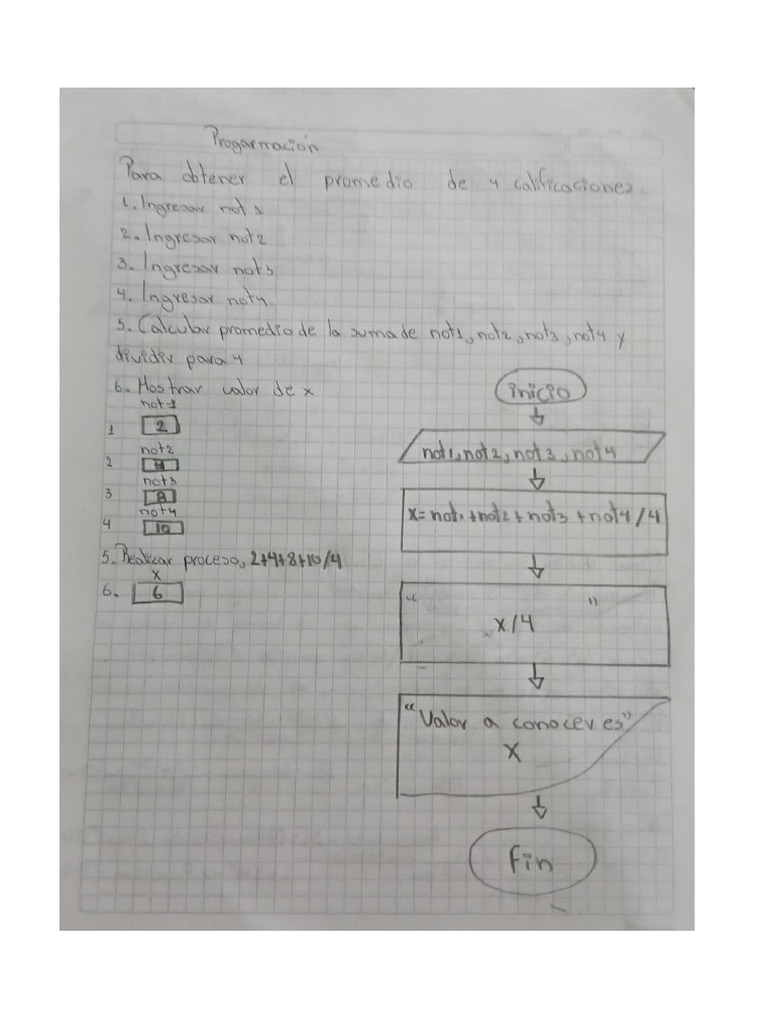 Progarmación
Para obtener el promedio de 4 calificaciones.
1. Ingresar not 1
2. Ingresar not2
3. Ingresar not3
4. Ingresar not4
5. Calcular promedio de la suma de not1, not2, not3, not4 y
dividir para 4
6. Mostrar valor de x
not1
1 2
not2
2 4
not3
3 8
not4
4 10
5. Realizar proceso, 2+4+8+10/4
x
6. 6
inicio
not1, not2, not3, not4
x=not1+not2+not3+not4/4
“ ”
x/4
“Valor a conocer es”
X
Fin